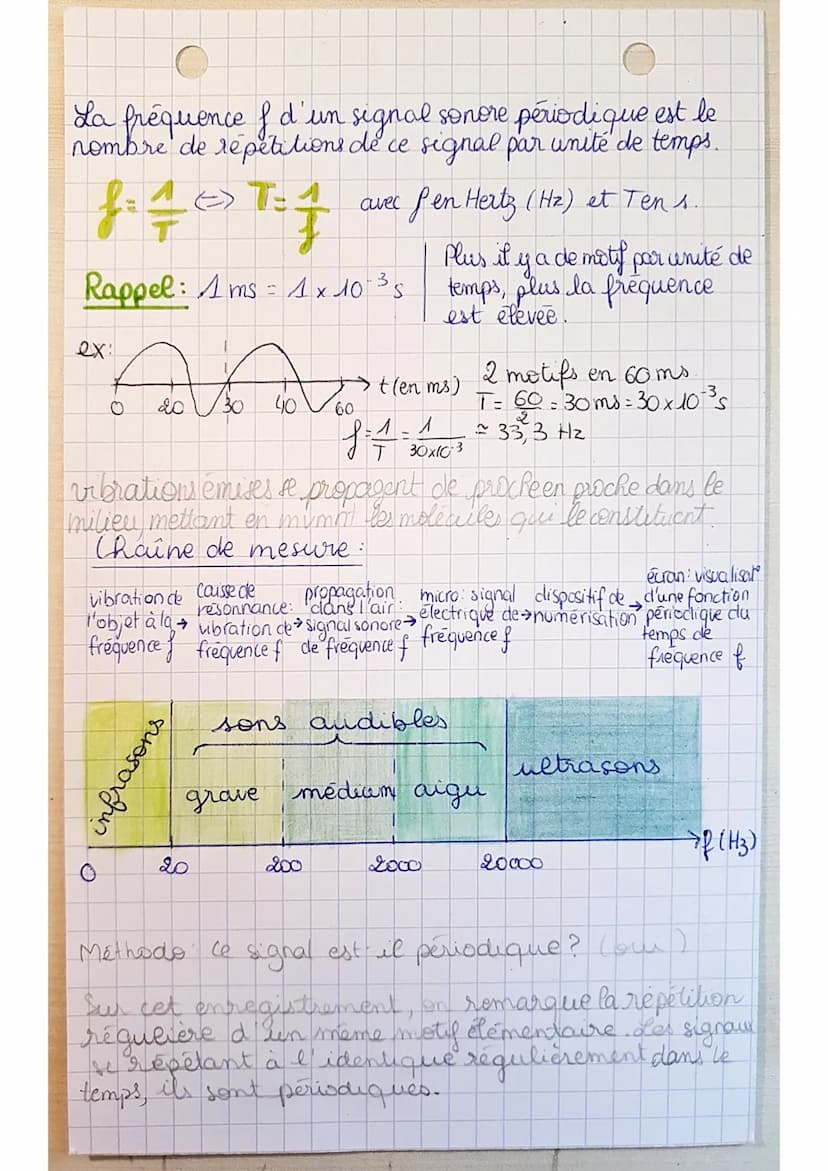 La fréquence f d'un signal sonore périodique est le
nombre de répétitions de ce signal par unité de temps.
f = 1/T <=> T = 1/f avec f en Hertz (Hz) et T en s.
Rappel: 1 ms = 1 x 10⁻³ s
Plus il y a de motif par unité de
temps, plus la fréquence
est élevée.
ex:
0 20 30 40 60 t (en ms)
2 motifs en 60 ms
T = 60/2 = 30 ms = 30 x 10⁻³ s
f = 1/T = 1/30x10⁻³ ≃ 33,3 Hz
vibrations émises se propagent de proche en proche dans le
milieu, mettant en mvmnt les molécules qui le constituent.
Chaîne de mesure :
vibration de
l'objet à la →
fréquence f
caisse de
résonnance:
vibration de →
fréquence f
propagation
dans l'air:
signal sonore →
de fréquence f
micro: signal
électrique de →
fréquence f
dispositif de →
numérisation
écran: visualisat°
d'une fonction
périodique du
temps de
fréquence f
infrasons
sons audibles
grave médium aigu
ultrasons
0 20 200 2000 20000 f (Hz)
Méthode: ce signal est-il périodique? (oui)
Sur cet enregistrement, on remarque la répétition
régulière d'un même motif élémendaire. Les signaux
se répétant à l'identique régulièrement dans le
temps, ils sont périodiques.